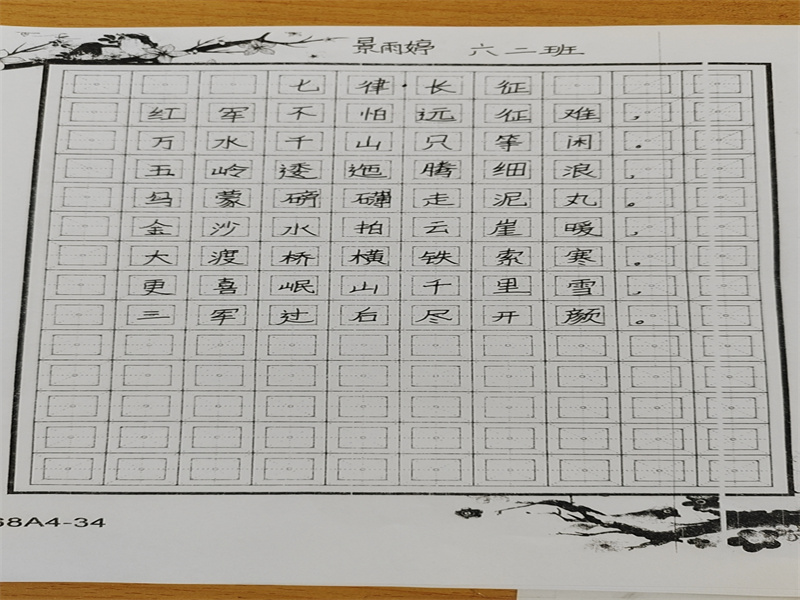 景雨婷 六二班
七律·长征
红军不怕远征难，
万水千山只等闲。
五岭逶迤腾细浪，
乌蒙磅礴走泥丸。
金沙水拍云崖暖，
大渡桥横铁索寒。
更喜岷山千里雪，
三军过后尽开颜。
68A4-34